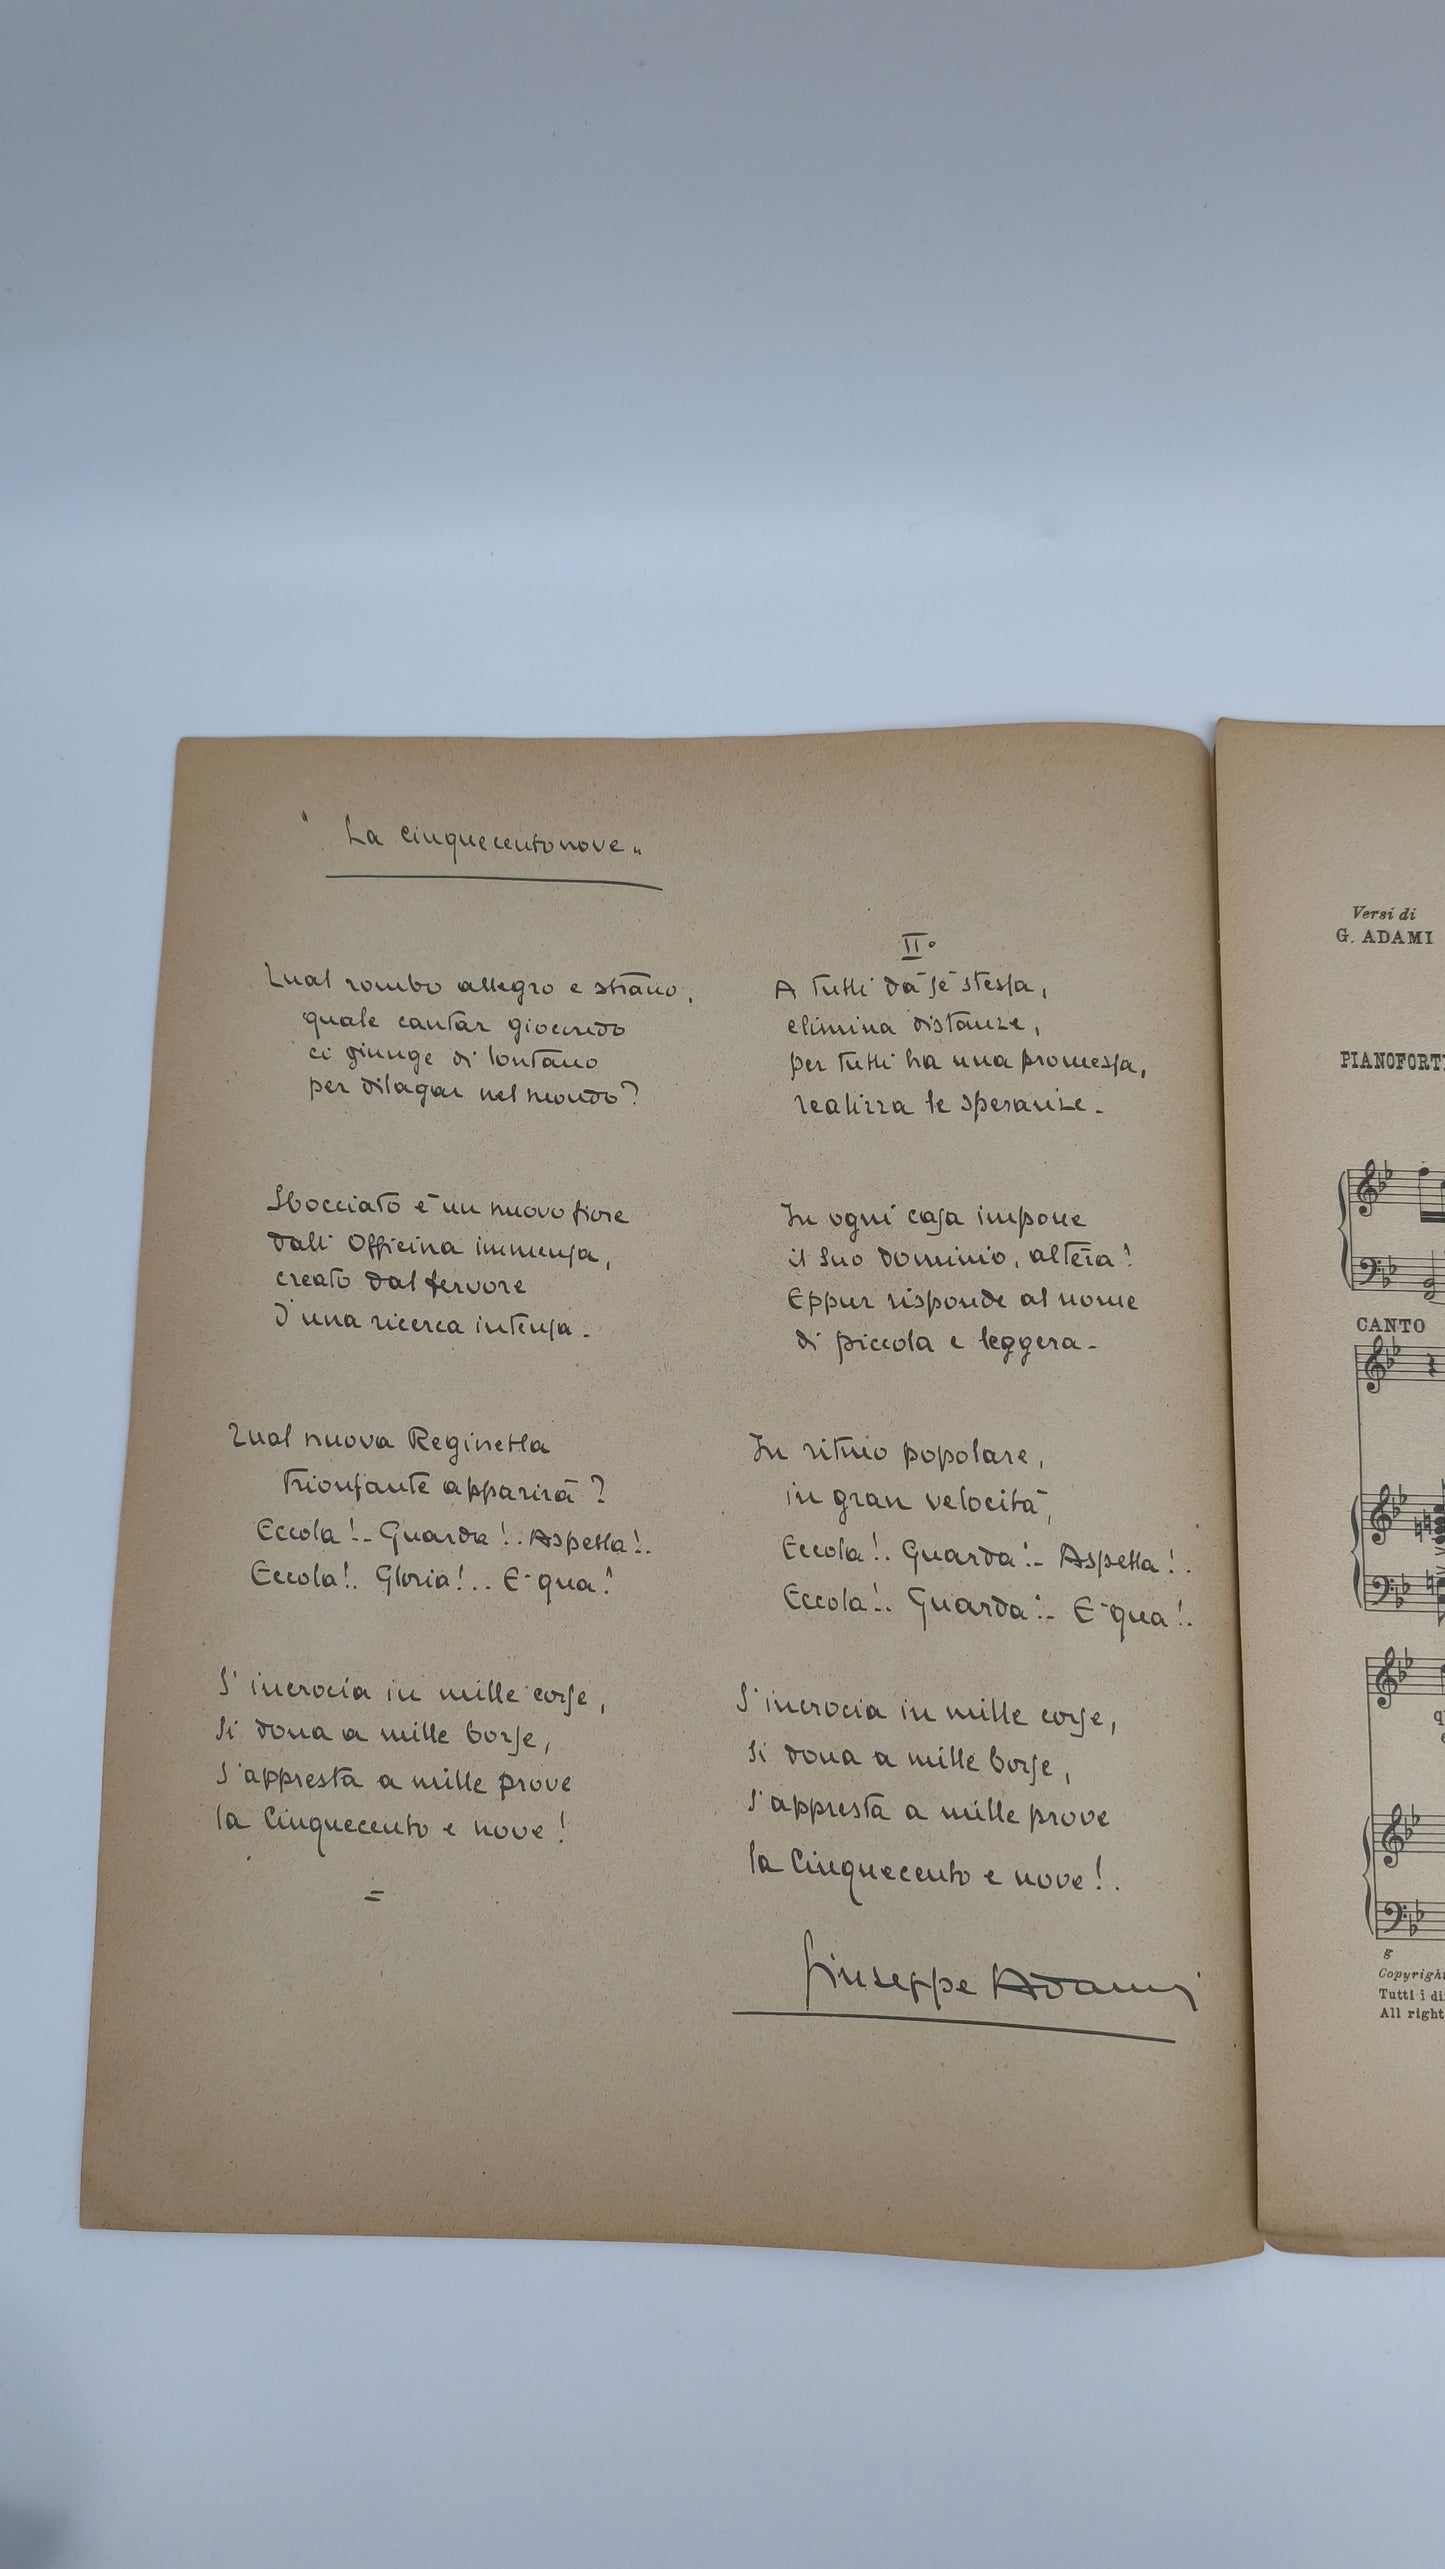 "La Cinquecentonove"
Qual rombo allegro e strano,
quale cantar giocondo
ci giunge di lontano
per dilagar nel mondo?
Sbocciato è un nuovo fiore
dall'Officina immensa,
creato dal fervore
d'una ricerca intensa.
Qual nuova Reginetta
trionfante apparirà?
Eccola!.. Guarda!.. Aspetta!..
Eccola!.. Gloria!.. E' qua!
S'incrocia in mille corse,
si dona a mille borse,
s'appresta a mille prove
la Cinquecento e nove!
=
II°
A tutti dà sè stessa,
elimina distanze,
per tutti ha una promessa,
realizza le speranze.
In ogni casa impone
il suo dominio, altera!
Eppur risponde al nome
di piccola e leggera.
In ritmo popolare,
in gran velocità,
Eccola!.. Guarda!.. Aspetta!..
Eccola!.. Guarda!.. E' qua!..
S'incrocia in mille corse,
si dona a mille borse,
s'appresta a mille prove
la Cinquecento e nove!.
Giuseppe Adami
Versi di
G. ADAMI
PIANOFORT
CANTO
q
g
Copyright
Tutti i di
All right